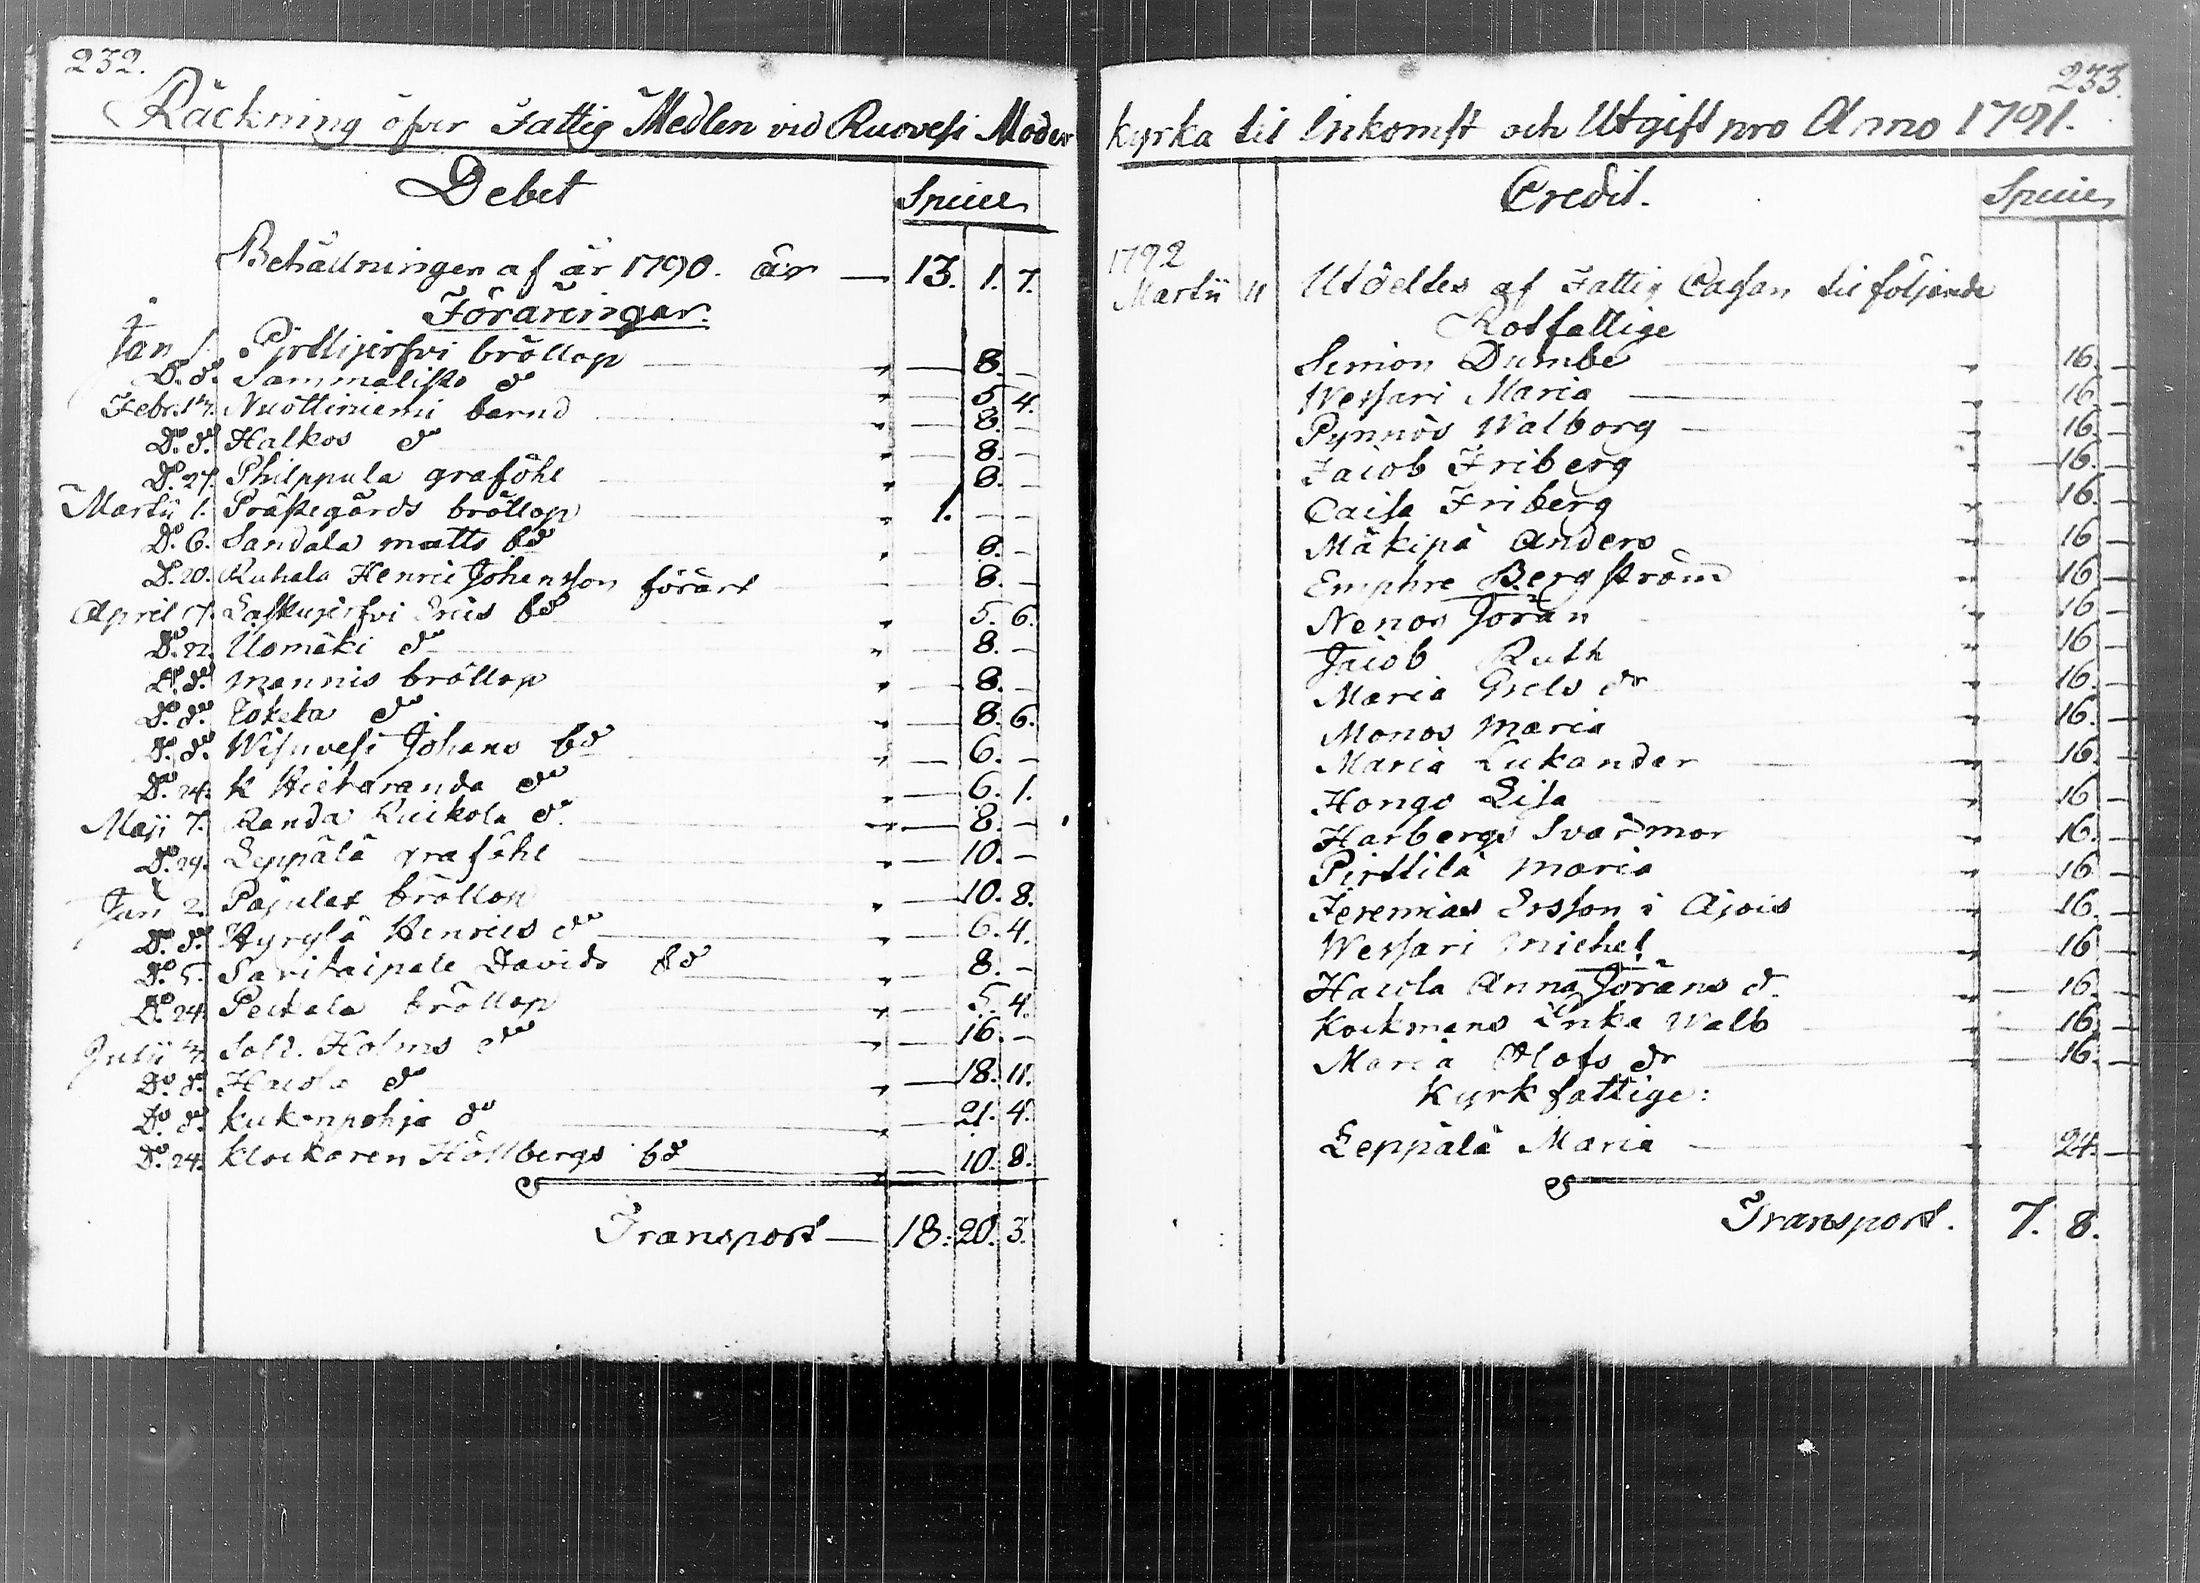 232.
Räckning öfver Fattig Medlen vid Ruovesi Moder
Debet
Specier
Behållningen af år 1790. är — 13. 1. 7.
Föräringar.
Jan 1. Pirttijerfvi bröllop " — 8. —
D.o d.o Sammalisto d.o " — 5 4.
Febr. 13. Nuottiniemi barnd " — 8. —
D.o d.o Halkos d.o " — 8. —
D.o 27. Philppula graföhl " — 8. —
Martii 1. Prästegårds bröllop " 1. — —
D.o 6. Sandala matts bd " 8. —
D.o 20. Ruhala Henric Johansson förärt 8. —
April 7. Laskujerfvi Erics bd " 5. 6.
D.o 22. Uomäki d.o " 8. —
D.o d.o Mannis bröllop " — 8. —
D.o d.o d.o " — 8. 6.
D.o d.o Visuvesi Johans bd " — 6. —
D.o 24. K Hietaranda d.o " — 6. 1.
Maji 7. Randa d.o " — 8. —
D.o 29. Leppälä graföhl " — 10. —
Jun 2. Pajulax bröllop " — 10. 8.
D.o d.o Hyrylä Henrics d.o " — 6. 4.
D.o 5. Saritaipale Davids bd " — 8. —
D.o 24. Peckala bröllop " — 5. 4.
Julii Sold. Holms d.o " — 16. —
D.o d.o d.o " — 18. 11.
D.o d.o Kukonpohja d.o " — 21. 4.
D.o 24. Klockaren Hällbergs bd " — 10. 8.
Transport — 18. 20. 3.
233.
kyrka til Inkomst och Utgift pro Anno 1791.
Credit.
Specier
1792
Martii 11 Utdeltes af Fattig Cassan til följande
Rotfattige
Simon Dumbe " 16. —
Wessari Maria " 16. —
Pynnös Walborg " 16. —
Jacob Friberg " 16. —
Caisa Friberg " 16. —
Mäkipä Anders " 16 —
Emphre Bergström " 16 —
Nenos Jöran " 16 —
Jacob Ruth " 16 —
Maria Griels dr " 16. —
Monos Maria " 16. —
Maria Lukander " 16. —
Hongo Lisa " 16 —
Harbergs Svärmor " 16. —
Pirttilä Maria " 16 —
Jeremias Ersson i Ajois " 16. —
Wessari Michel " 16 —
Anna Jörans d. " 16. —
Kockmans Enka Walb 16 —
Maria Olofs dr " 16. —
Kyrkfattige:
Leppälä Maria " 24. —
Transport. 7. 8.